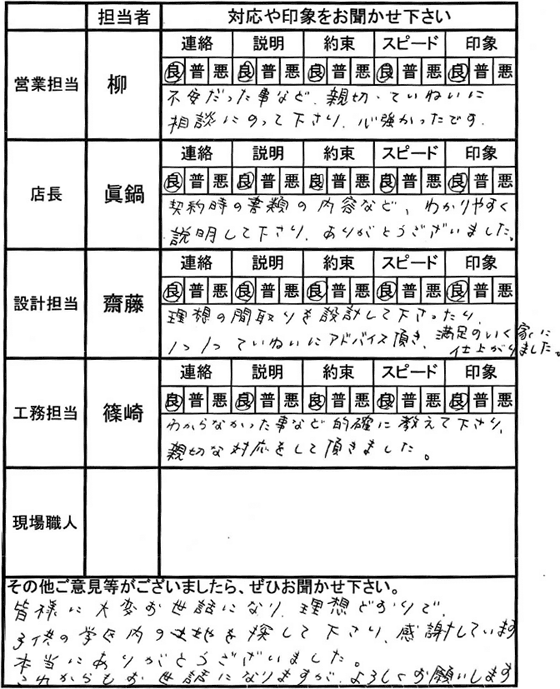 担当者 対応や印象をお聞かせ下さい
営業担当 柳
連絡 説明 約束 スピード 印象
良 普 悪 良 普 悪 良 普 悪 良 普 悪 良 普 悪
不安だった事など、親切、ていねいに
相談にのって下さり、心強かったです。
店長 眞鍋
連絡 説明 約束 スピード 印象
良 普 悪 良 普 悪 良 普 悪 良 普 悪 良 普 悪
契約時の書類の内容など、わかりやすく
説明して下さり、ありがとうございました。
設計担当 齋藤
連絡 説明 約束 スピード 印象
良 普 悪 良 普 悪 良 普 悪 良 普 悪 良 普 悪
理想の間取りを設計して下さったり、
1つ1つていねいにアドバイス頂き、満足のいく家に
仕上がりました。
工務担当 篠崎
連絡 説明 約束 スピード 印象
良 普 悪 良 普 悪 良 普 悪 良 普 悪 良 普 悪
わからなかった事など的確に教えて下さり、
親切な対応をして頂きました。
現場職人
その他ご意見等がございましたら、ぜひお聞かせ下さい。
皆様に大変お世話になり、理想どおりで、
子供の学区内の土地を探して下さり、感謝しています
本当にありがとうございました。
これからもお世話になりますが、よろしくお願いします